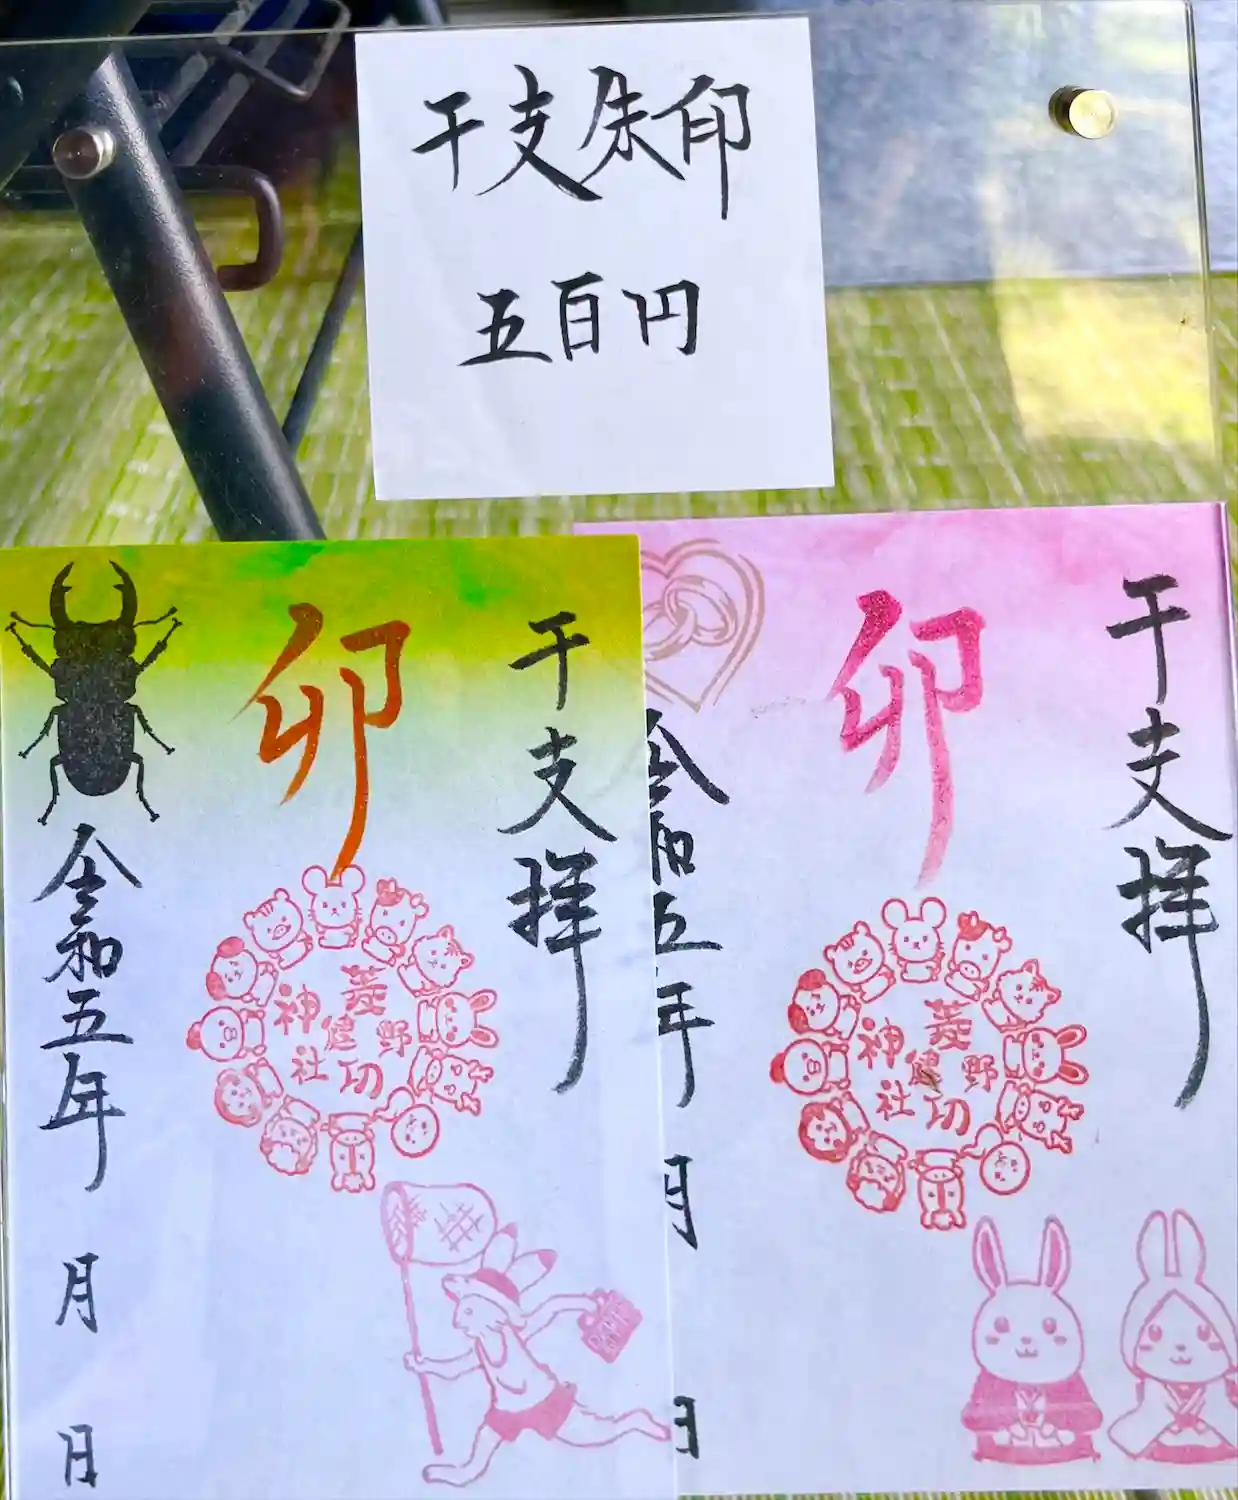 干支朱印
五百円
干支拝
卯
菱野
健功
神社
令和五年
月
日
干支拝
卯
菱野
健功
神社
令和五年
月
日